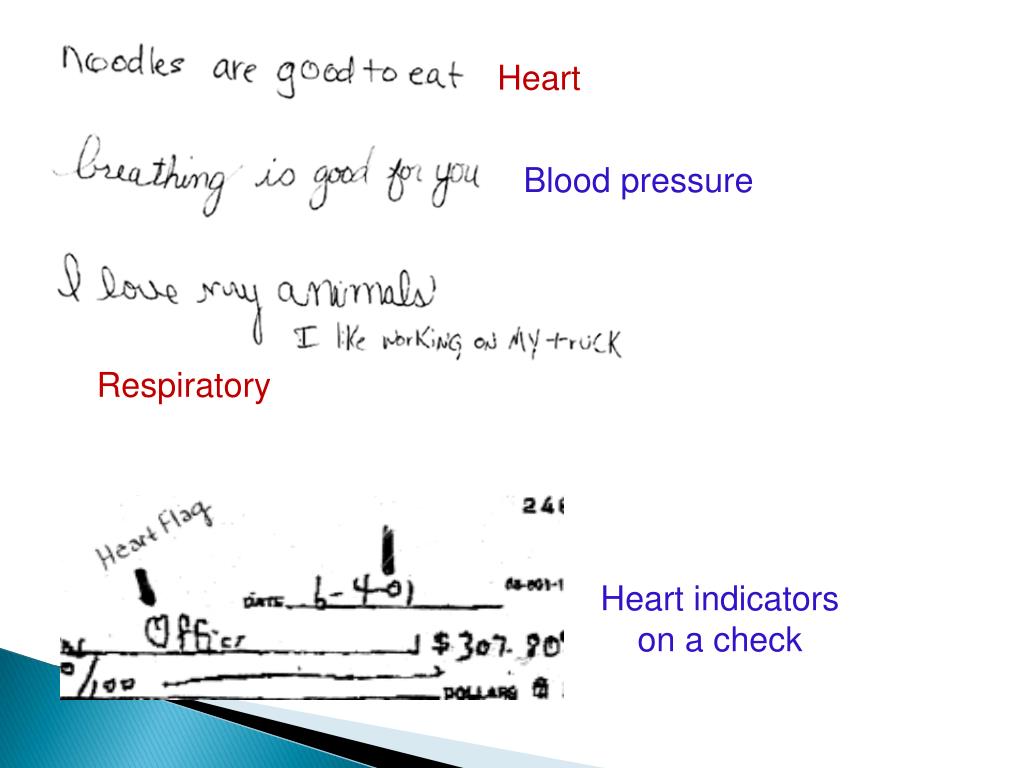 Noodles are good to eat Heart
breathing is good for you Blood pressure
I love my animals
I like working on My truck
Respiratory
Heart Flag
DATE 6-4-01
Office $307.80
/100 DOLLARS
Heart indicators
on a check